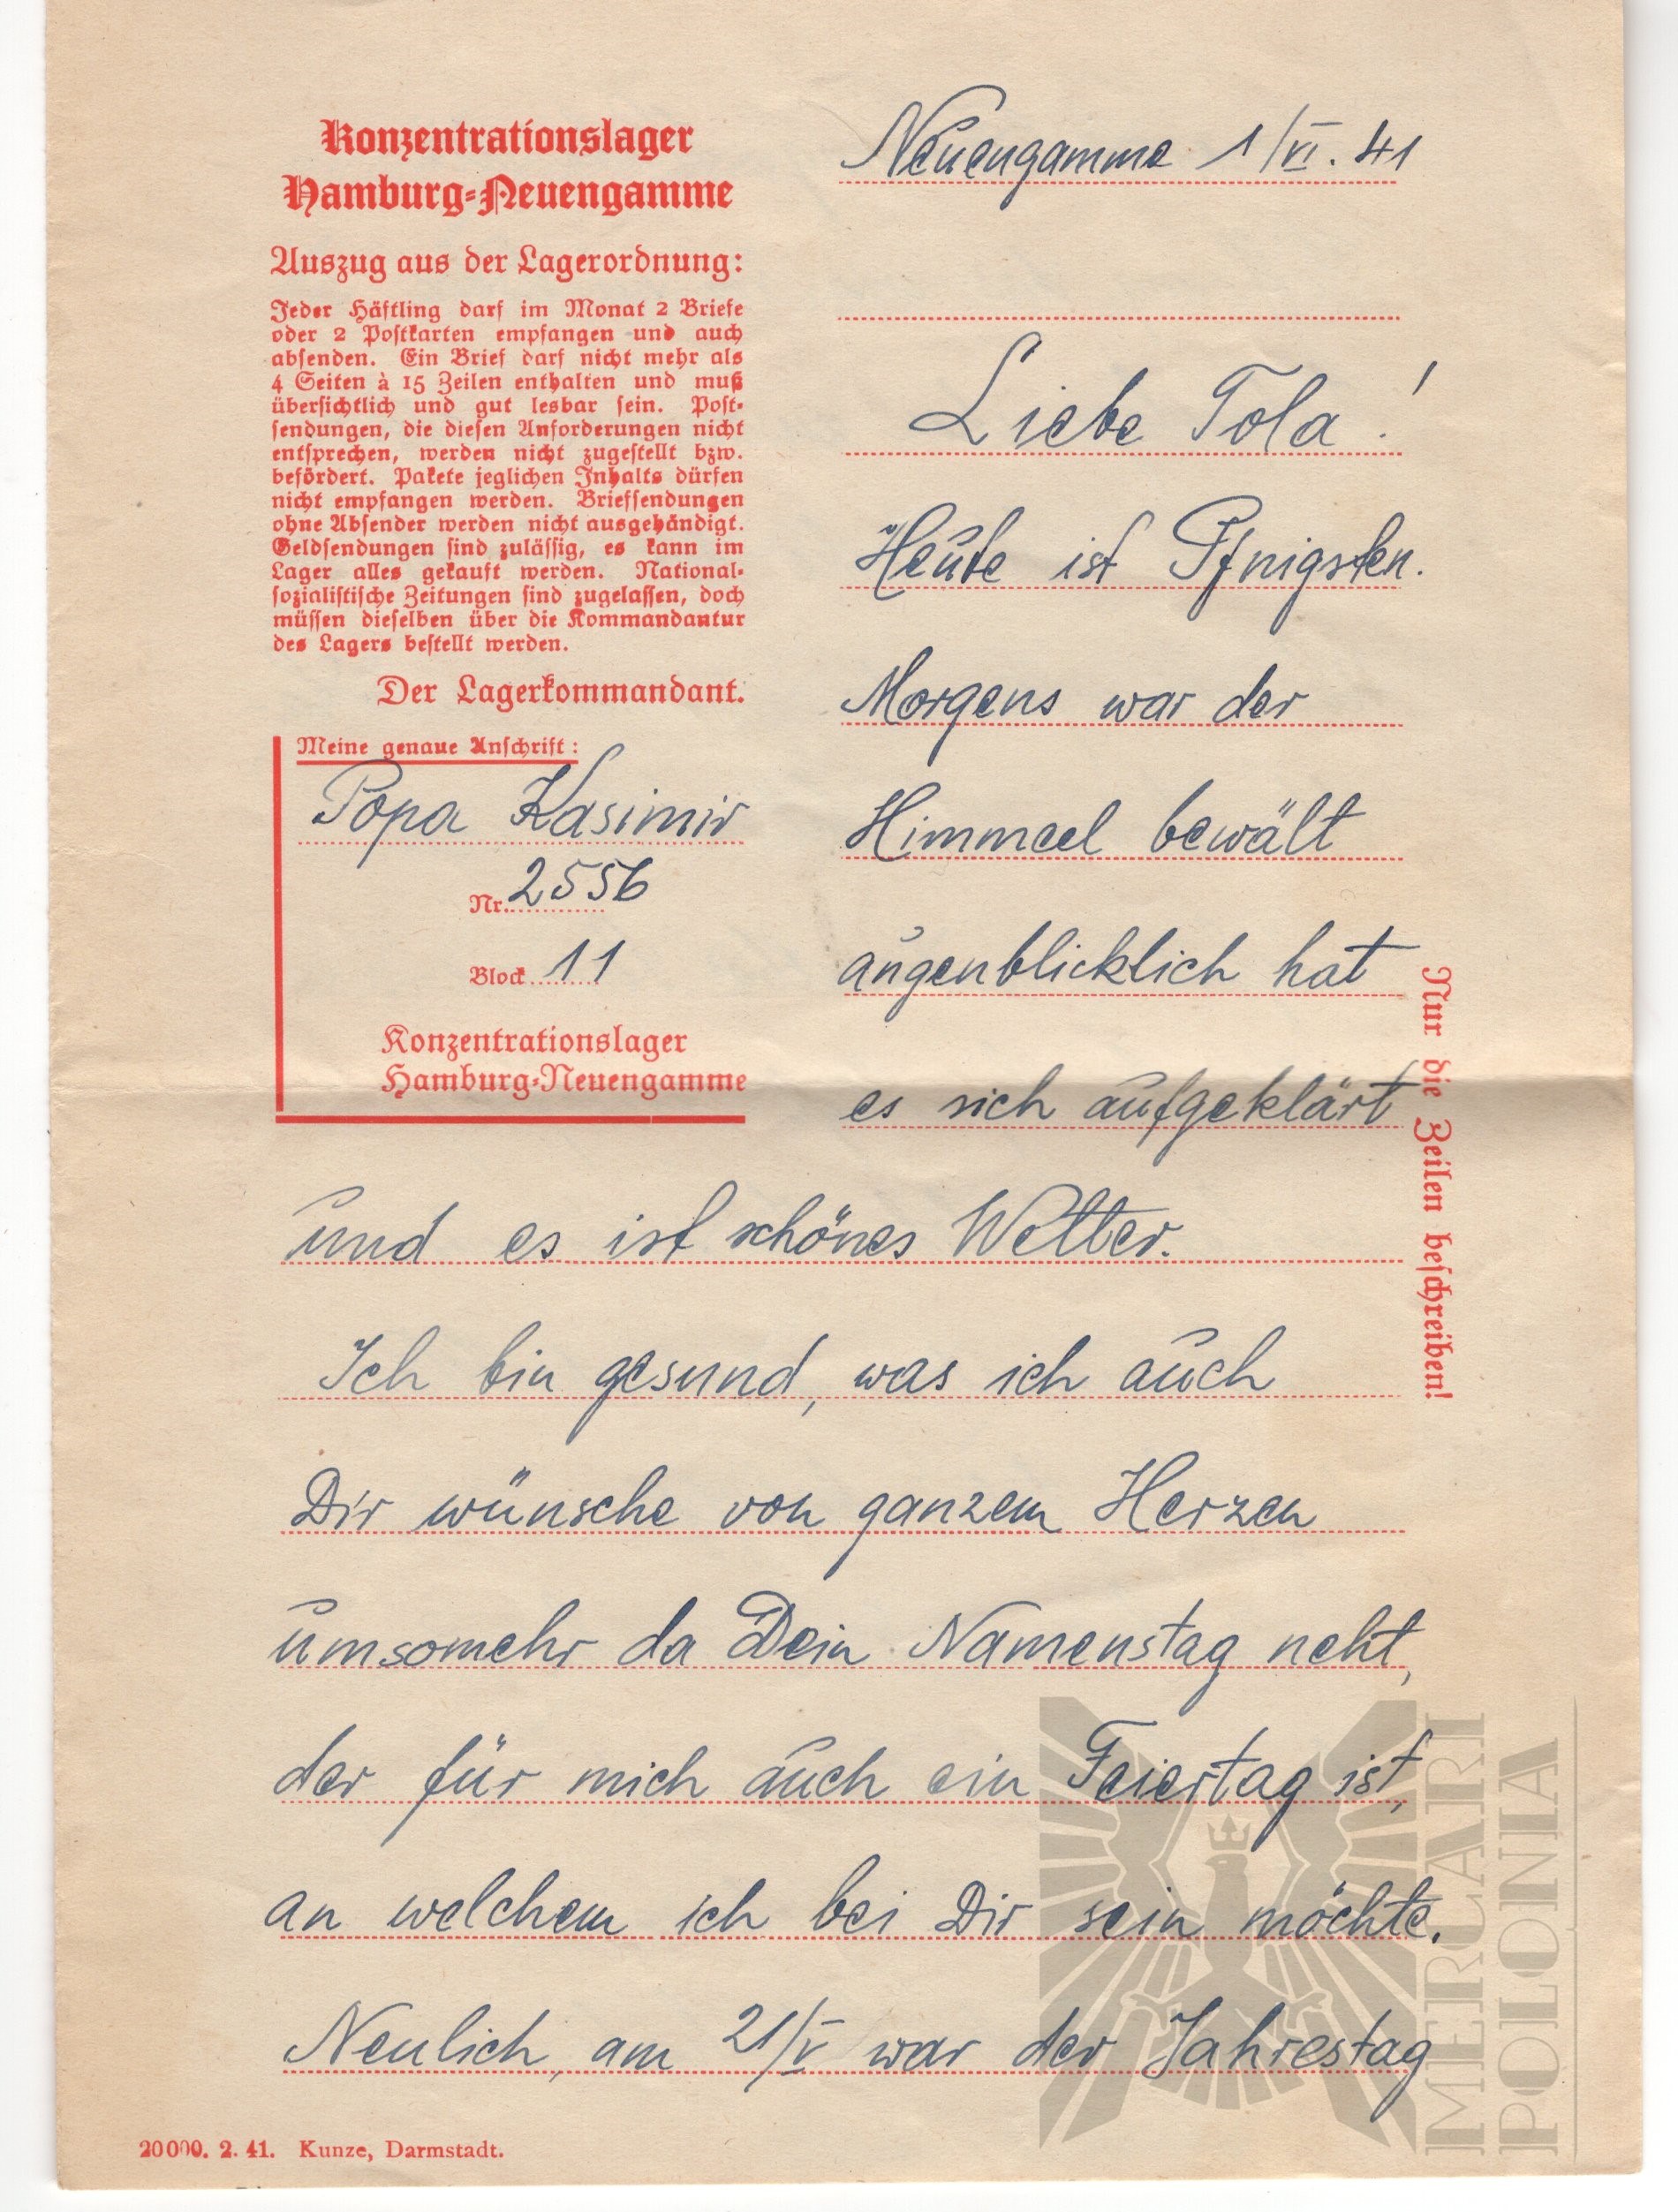 Konzentrationslager
Hamburg-Neuengamme
Auszug aus der Lagerordnung:
Jeder Häftling darf im Monat 2 Briefe
oder 2 Postkarten empfangen und auch
absenden. Ein Brief darf nicht mehr als
4 Seiten à 15 Zeilen enthalten und muß
übersichtlich und gut lesbar sein. Post-
sendungen, die diesen Anforderungen nicht
entsprechen, werden nicht zugestellt bzw.
befördert. Pakete jeglichen Inhalts dürfen
nicht empfangen werden. Briefsendungen
ohne Absender werden nicht ausgehändigt.
Geldsendungen sind zulässig, es kann im
Lager alles gekauft werden. National-
sozialistische Zeitungen sind zugelassen, doch
müssen dieselben über die Kommandantur
des Lagers bestellt werden.
Der Lagerkommandant.
Meine genaue Anschrift:
Popa Kasimir
Nr. 2556
Block 11
Konzentrationslager
Hamburg-Neuengamme
Neuengamme 1/VI. 41
Liebe Tola!
Heute ist Pfnigsten.
Morgens war der
Himmeel bewält
augenblicklich hat
es sich aufgeklärt
und es ist schönes Wetter.
Ich bin gesund, was ich auch
Dir wünsche von ganzem Herzen
umsomehr da Dein Namenstag neht,
der für mich auch ein Feiertag ist,
an welchem ich bei Dir sein möchte.
Neulich, am 21/V war der Jahrestag
Nur die Zeilen beschreiben!
20000. 2. 41. Kunze, Darmstadt.
MERCARI
POLONIA